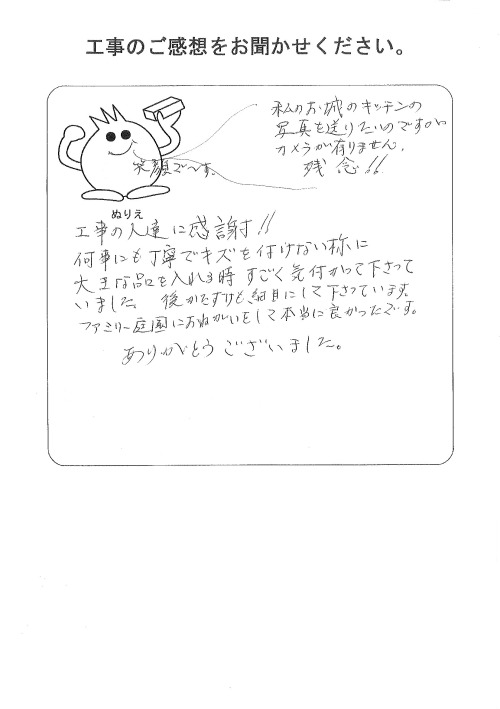 工事のご感想をお聞かせください。
私のお城のキッチンの
写真を送りたいのですが
カメラが有りません。
残念!!
笑顔で〜す。
ぬりえ
工事の人達に感謝!!
何事にも丁寧でキズを付けない称に
大王な品を入れる時すごく気付かって下さって
いました。後かたずけも綺目にして下さっています。
ファミリー庭園におねがいをして本当に良かったです。
ありがとうございました。